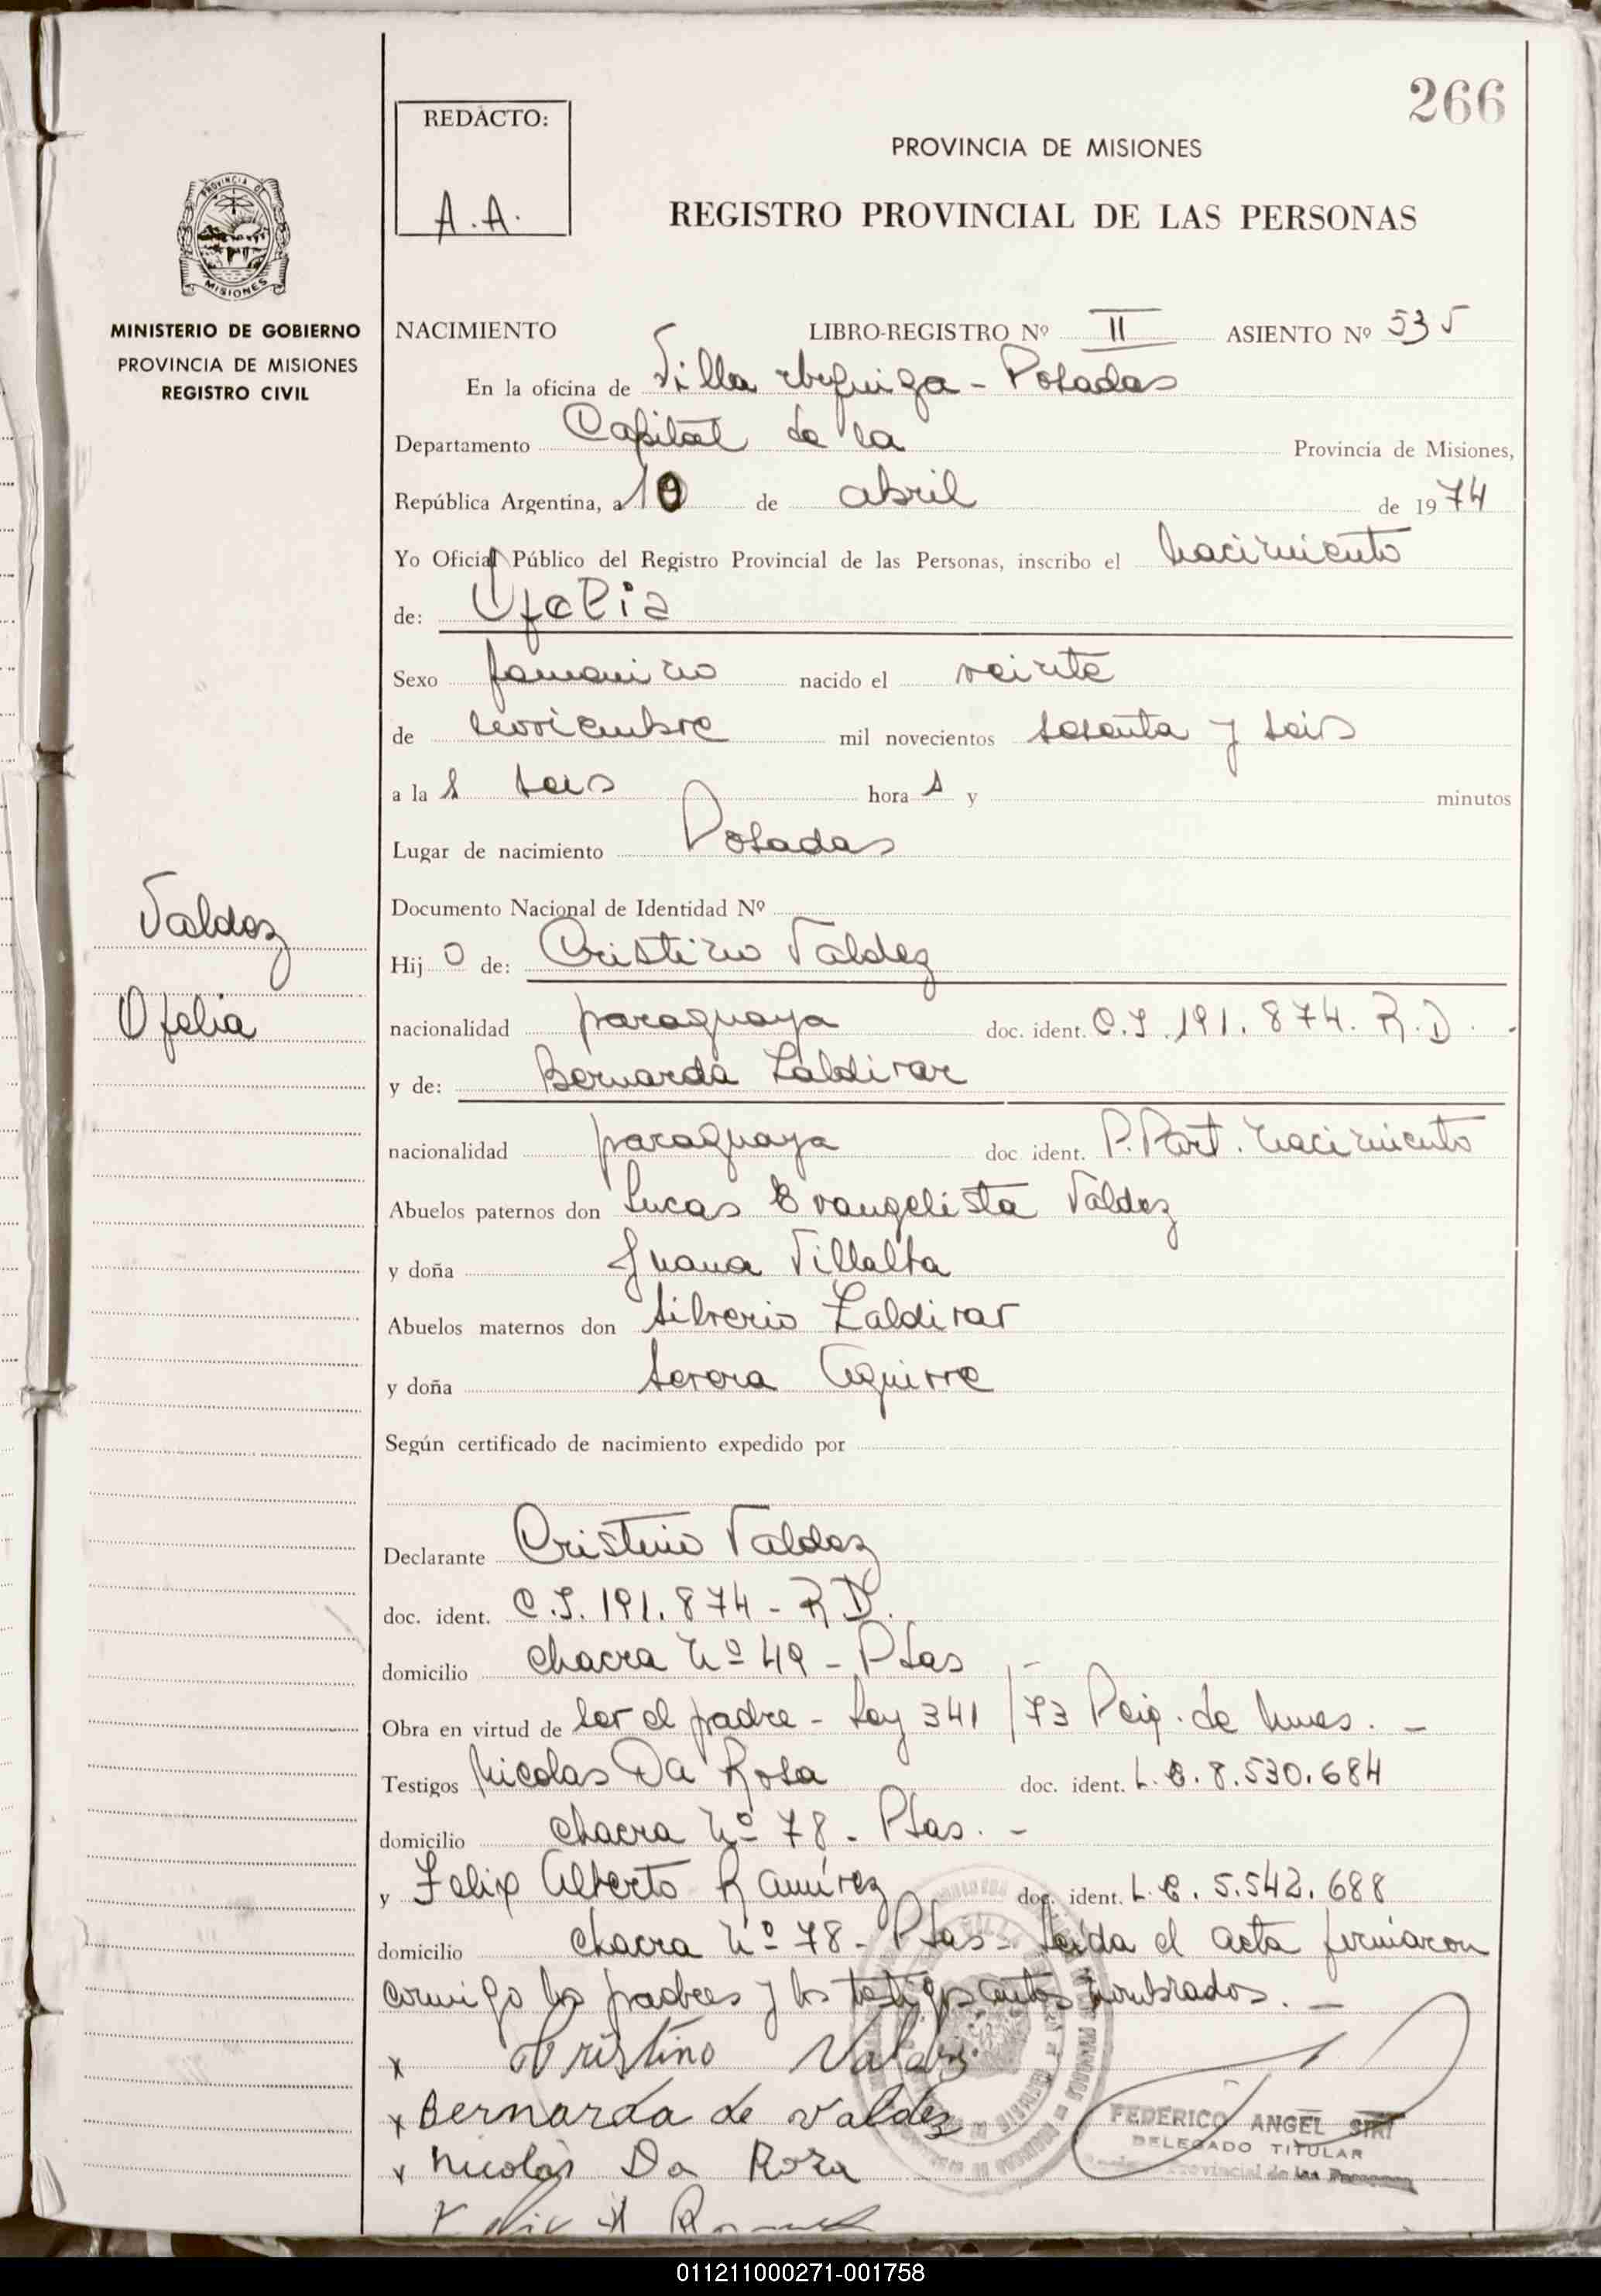 266
REDACTO:
A.A.
PROVINCIA DE MISIONES
REGISTRO PROVINCIAL DE LAS PERSONAS
PROVINCIA DE
MISIONES
MINISTERIO DE GOBIERNO
PROVINCIA DE MISIONES
REGISTRO CIVIL
NACIMIENTO LIBRO-REGISTRO Nº II ASIENTO Nº 535
En la oficina de Villa Urquiza - Posadas
Departamento Capital de la Provincia de Misiones,
República Argentina, a 10 de abril de 1974
Yo Oficial Público del Registro Provincial de las Personas, inscribo el nacimiento
de: Ofelia
Sexo femenino nacido el veinte
de noviembre mil novecientos sesenta y seis
a las seis horas y minutos
Lugar de nacimiento Posadas
Documento Nacional de Identidad Nº
Valdez
Ofelia
Hijo de: Cristino Valdez
nacionalidad paraguaya doc. ident. C.I. 191.874. R.D.
y de: Bernarda Zaldivar
nacionalidad paraguaya doc ident. P. Part. nacimiento
Abuelos paternos don Lucas Evangelista Valdez
y doña Juana Villalta
Abuelos maternos don Silverio Zaldivar
y doña Aguirre
Según certificado de nacimiento expedido por
Declarante Cristino Valdez
doc. ident. C.I. 191.874 - R D.
domicilio chacra nº 49 - Pdas
Obra en virtud de ser el padre - Ley 341/73
Testigos Nicolas Da Rosa doc. ident. L.E. 8.530.684
domicilio chacra nº 78 - Pdas. -
y Felix Alberto Ramírez doc. ident. L.E. 5.542.688
domicilio chacra nº 78 - Pdas - Leída el acta firmaron
conmigo los padres y los testigos antes nombrados. -
x Cristino Valdez
x Bernarda de Valdez
x Nicolás Da Rosa
FEDERICO ANGEL SIRI
DELEGADO TITULAR
Provincial de las Personas
011211000271-001758